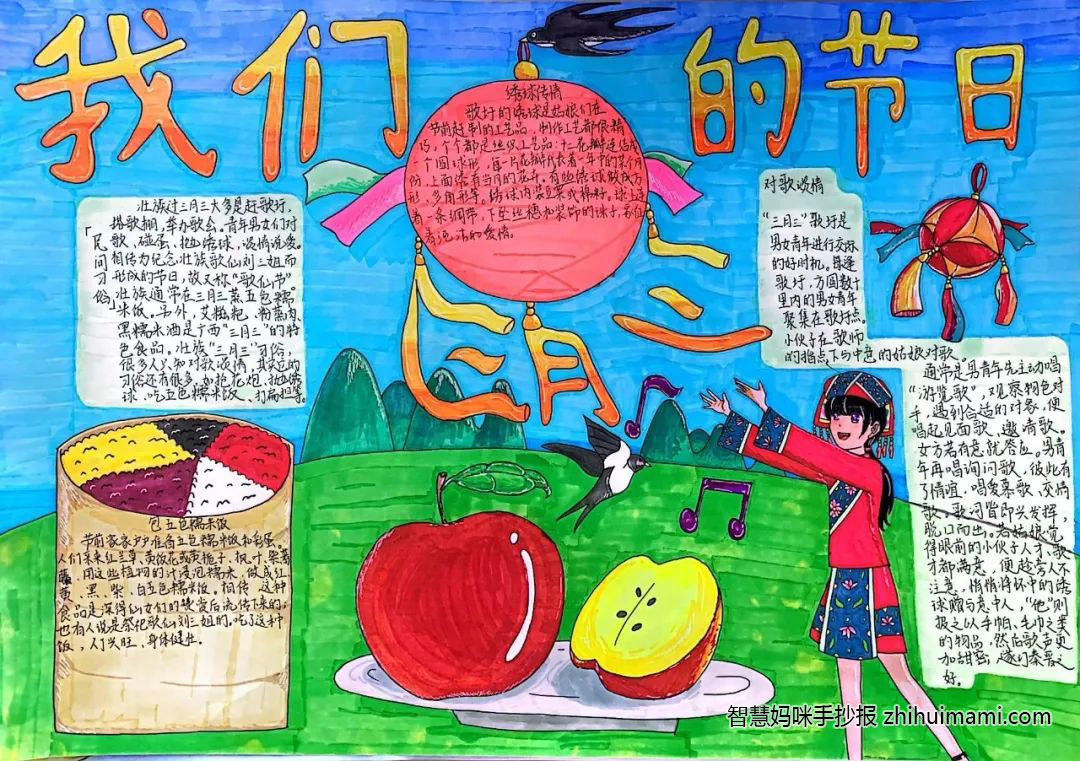 我们的节日
三月三
绣球传情
歌圩的绣球是姑娘们在
节前赶制的工艺品，制作工艺都很精
巧，个个都是丝织工艺品：十二花瓣连结成
一个圆球形，每一片花瓣代表着一年中的某个月
份，上面绣有当月的花卉。有些绣球做成方
形、多角形等。绣球内装豆粟或棉籽。球上连
着一条绸带，下坠丝穗和装饰的珠子，象征
着纯洁的爱情。
壮族过三月三大多是赶歌圩，
搭歌棚，举办歌会。青年男女们对
歌、碰蛋、抛绣球，谈情说爱。
民间相传为纪念壮族歌仙刘三姐而
形成的节日，故又称"歌仙节"
壮族通常在三月三蒸五色糯
米饭。另外，艾糍粑、粉蒸肉、
黑糯米酒是广西"三月三"的特
色食品。壮族"三月三"习俗，
很多人只知对歌谈情，其实它的
习俗还有很多，如抢花炮、抛绣
球、吃五色糯米饭、打扁担等。
对歌谈情
"三月三"歌圩是
男女青年进行交际
的好时机。每逢
歌圩，方圆数十
里内的男女青年
聚集在歌圩点。
小伙子在歌师
的指点下与中意的姑娘对歌。
通常是男青年先主动唱
"游览歌"，观察物色对
手，遇到合适的对象，便
唱起见面歌、邀请歌。
女方若有意就答应。男青
年再唱询问歌，彼此有
了情谊，唱爱慕歌、交情
歌。歌词皆即兴发挥，
脱口而出。若姑娘觉
得眼前的小伙子人才、歌
才都满意，便趁旁人不
注意，悄悄将怀中的绣
球赠与意中人，"他"则
报之以手帕、毛巾之类
的物品，然后歌声更
加甜蜜，遂订秦晋之
好。
包五色糯米饭
节前家家户户准备五色糯米饭和彩蛋。
人们采来红兰草、黄饭花或黄栀子、枫叶、紫蕃
藤，用这些植物的汁浸泡糯米，做成红
、黄、黑、紫、白五色糯米饭。相传，这种
食品是深得仙女们的赞赏后流传下来的；
也有人说是祭祀歌仙刘三姐的，吃了这种
饭，人丁兴旺，身体健壮。
智慧妈咪手抄报 zhihuimami.com